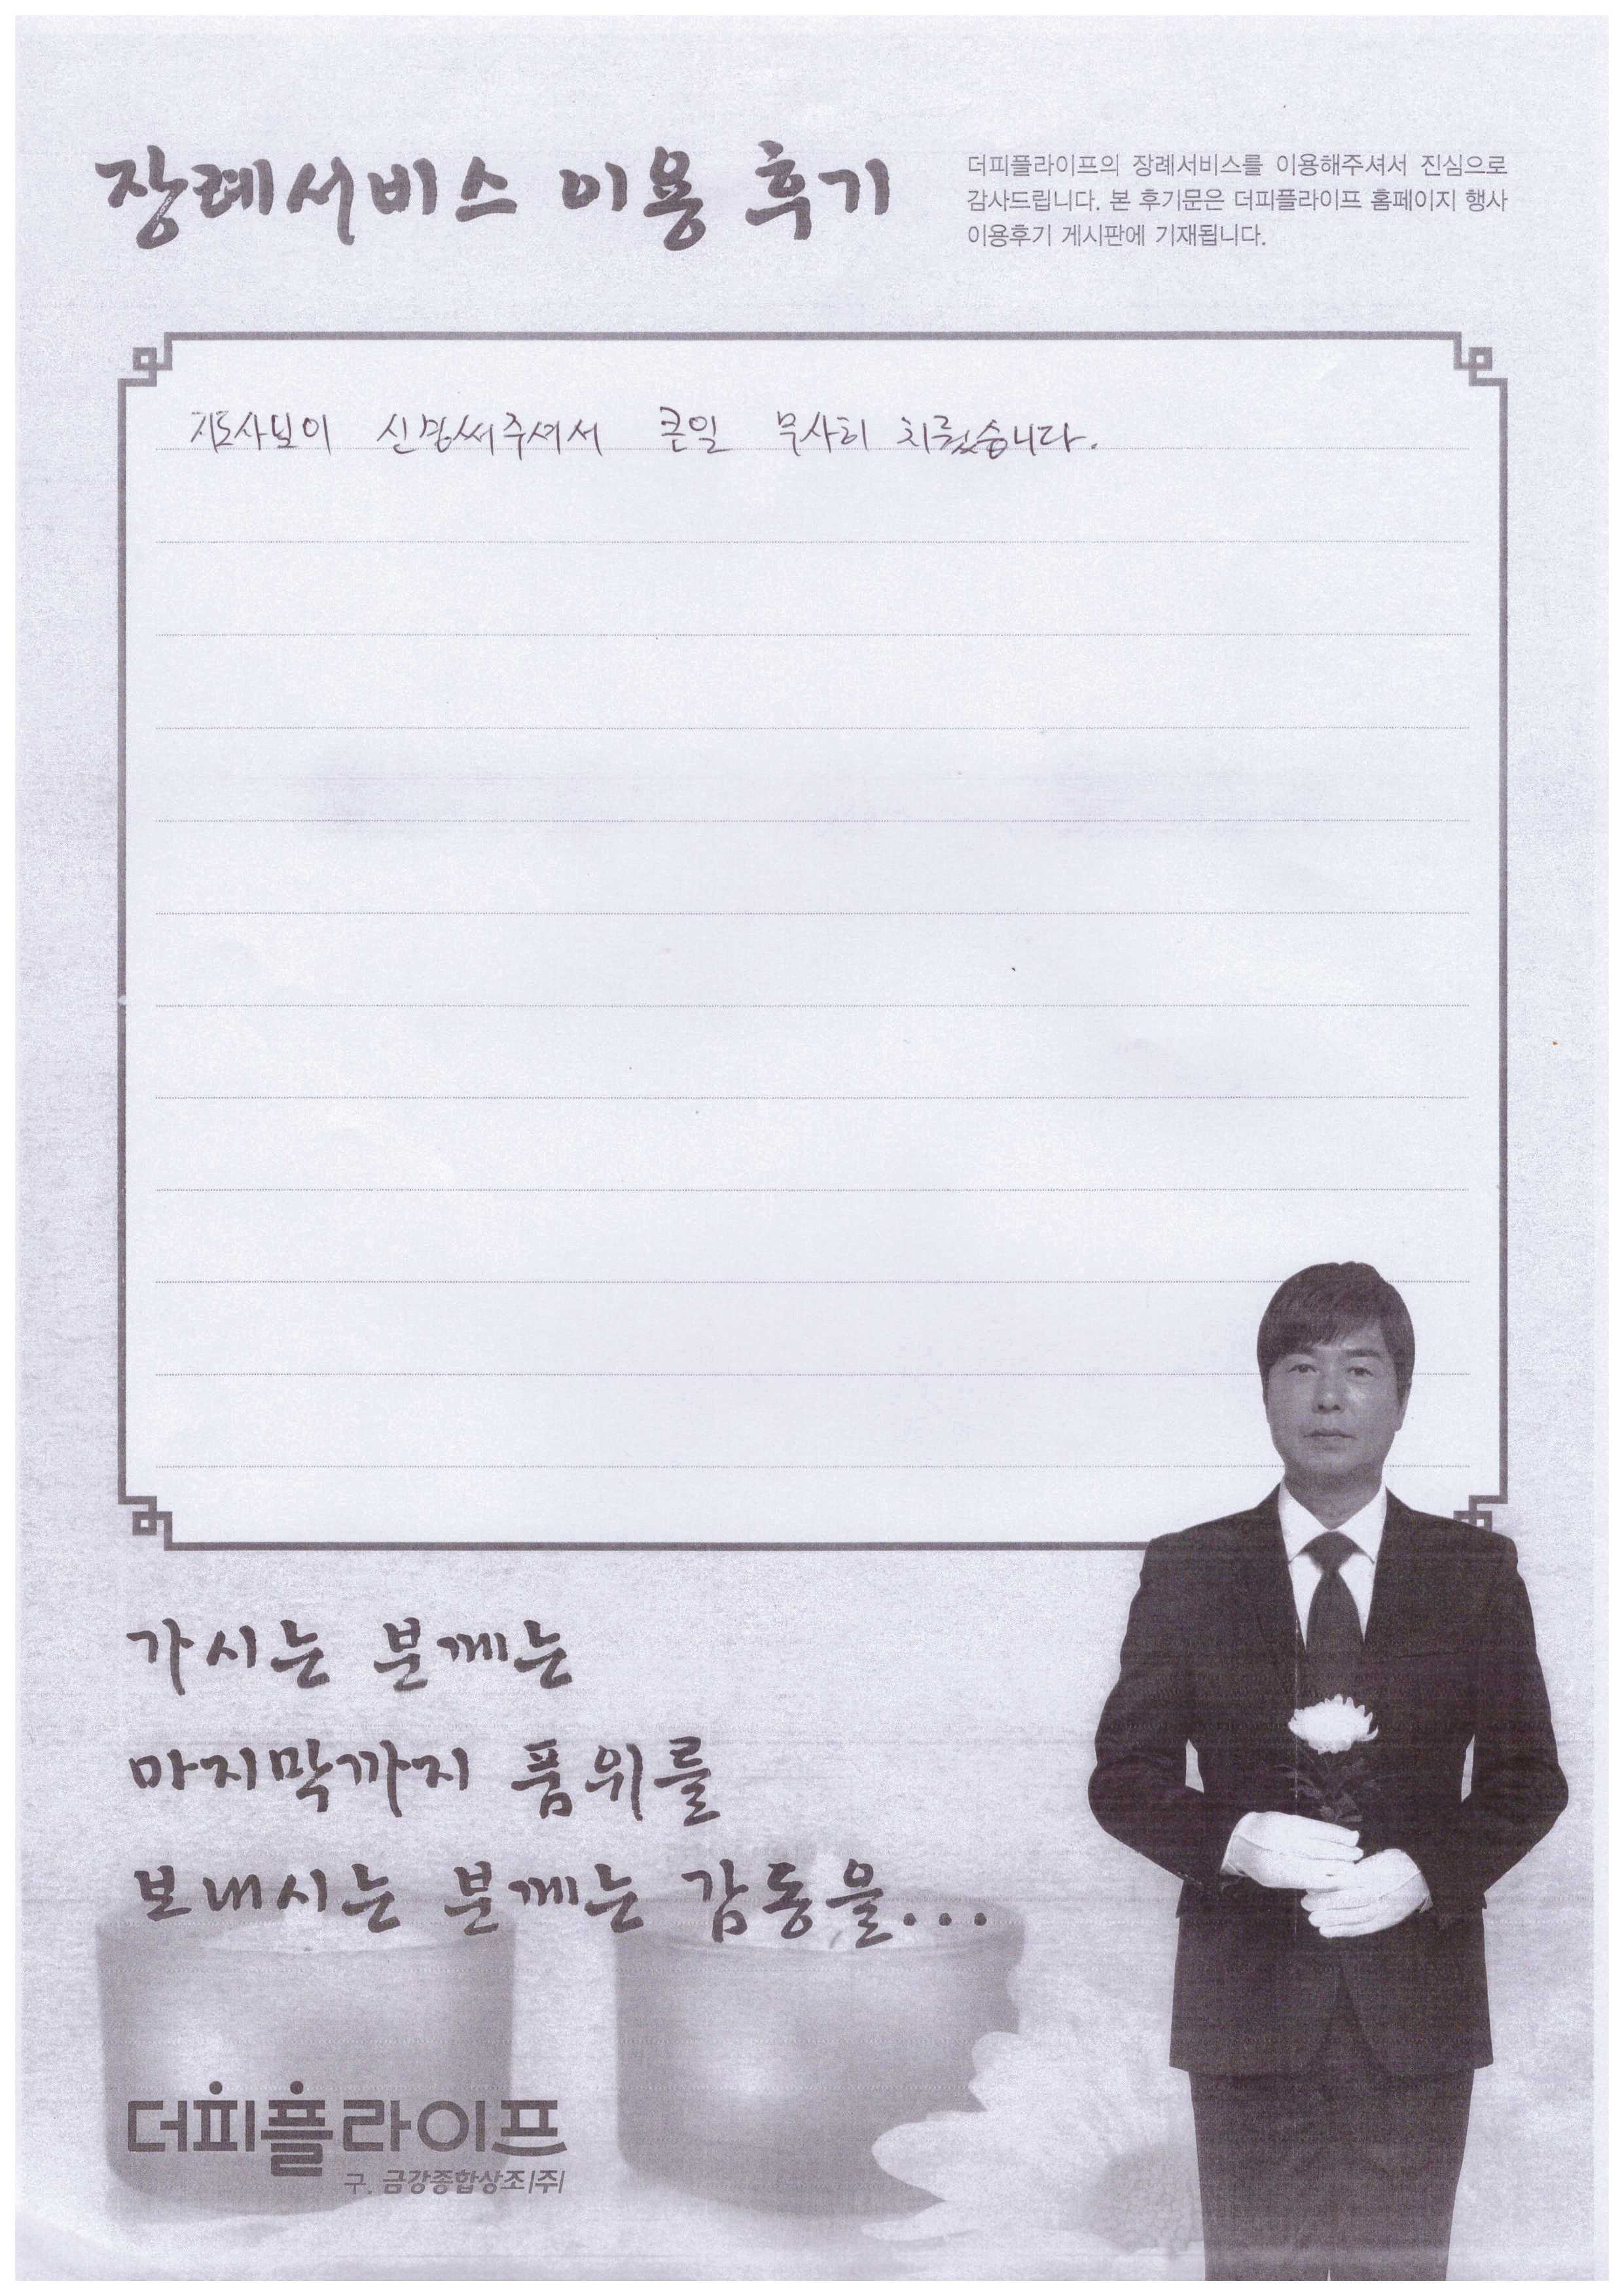 장례서비스 이용 후기
더피플라이프의 장례서비스를 이용해주셔서 진심으로
감사드립니다. 본 후기문은 더피플라이프 홈페이지 행사
이용후기 게시판에 기재됩니다.
지도사님이 신경써주셔서 큰일 무사히 치뤘습니다.
가시는 분께는
마지막까지 품위를
보내시는 분께는 감동을...
더피플라이프
구. 금강종합상조(주)